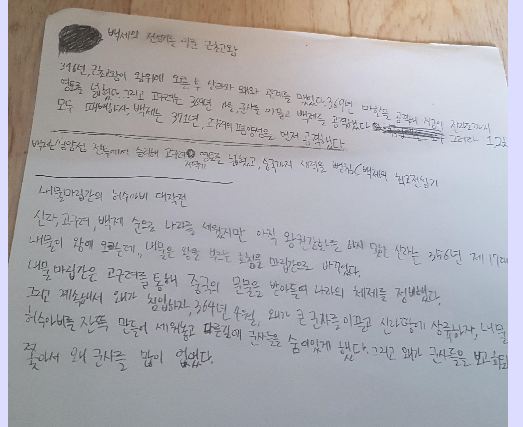 백제의 전성기를 이룬 근초고왕
346년, 근초고왕이 왕위에 오른 후 신라와 왜와 관계를 맺었다. 369년 마한을 공격해 지금의 전라도까지
영토를 넓혔다. 그리고 고구려는 369년 군사를 이끌고 백제를 공격했다. 그러나 고구
모두 패배하자, 백제는 371년, 고구려의 평양성을 먼저 공격했다
백제는 평양성 전투에서 승리해 고구려 영토를 넓혔고, 중국까지 세력을 뻗침(백제의 최고전성기
내물마립간의 허수아비 대작전
신라, 고구려, 백제 순으로 나라를 세웠지만 아직 왕권강화를 하지 않은 신라는 356년 제 17대
내물이 왕에 오르는데, 내물은 왕을 부르는 호칭을 마립간으로 바꾸었다.
내물마립간은 고구려를 통해 중국의 문물을 받아들여 나라의 체제를 정비했다.
그리고 계속해서 왜가 침입하자, 364년 4월, 왜가 큰 군사를 이끌고 신라땅에 상륙하자, 내물
허수아비를 잔뜩 만들어 세워놓고 다른길에 군사들을 숨어있게 했다. 그리고 왜가 군사들을 보고
쫓아서 왜 군사를 많이 없앴다.